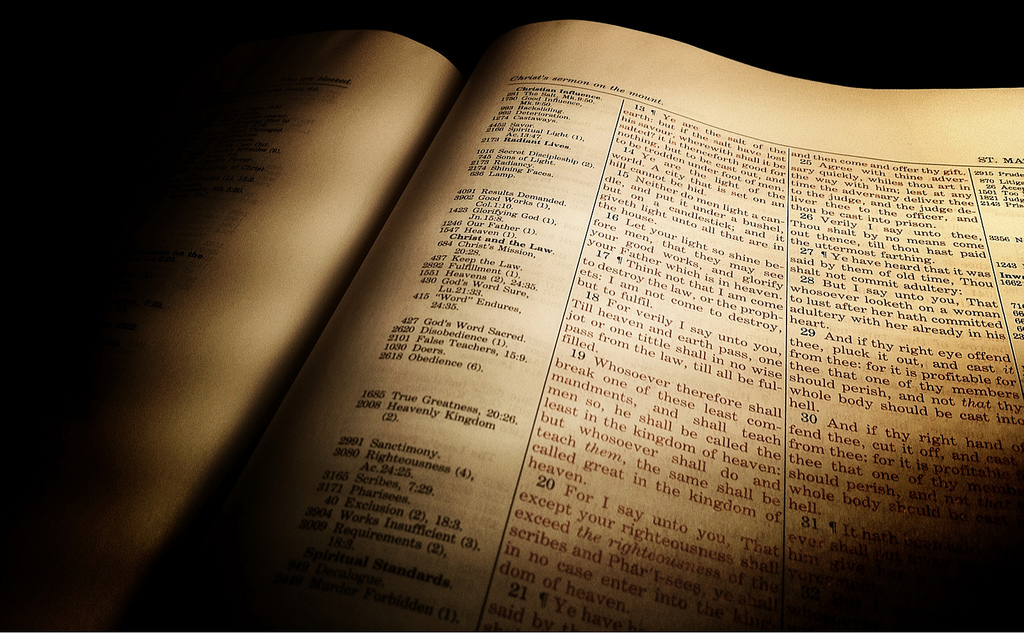 Christ's sermon on the mount.
Christian Influence.
The Salt, Mk.9:50.
Good Influence,
Mk.9:50.
Backsliding.
Deterioration.
1274 Castaways.
4452 Savor.
2166 Spiritual Light (1),
Ac.13:47.
2173 Radiant Lives.
1016 Secret Discipleship (2).
745 Sons of Light.
2175 Radiancy.
2174 Shining Faces.
686 Lamp.
4091 Results Demanded.
3902 Good Works (1),
Col.1:10.
1423 Glorifying God (1),
Jn.15:8.
1246 Our Father (1).
1547 Heaven (1).
Christ and the Law.
684 Christ's Mission,
20:28.
437 Keep the Law.
2892 Fulfillment (1).
1551 Heavens (2), 24:35.
430 God's Word Sure,
Lu.21:33.
415 "Word" Endures,
24:35.
427 God's Word Sacred.
2620 Disobedience (1).
2101 False Teachers, 15:9.
1030 Doers.
2618 Obedience (6).
1685 True Greatness, 20:26.
2008 Heavenly Kingdom
(2).
2991 Sanctimony.
3080 Righteousness (4),
Ac.24:25.
3165 Scribes, 7:29.
3171 Pharisees.
40 Exclusion (2), 18:3.
3904 Works Insufficient (3).
3009 Requirements (2),
18:3.
Spiritual Standards.
949 Decalogue,
2449 Murder Forbidden (1).
13 ¶ Ye are the salt of the
earth: but if the salt have lost
his savour, wherewith shall it be
salted? it is thenceforth good for
nothing, but to be cast out, and
14 Ye are the light of the
world. A city that is set on an
hill cannot be hid.
15 Neither do men light a candle,
and put it under a bushel,
but on a candlestick; and it
giveth light unto all that are in
the house.
16 Let your light so shine be-
fore men, that they may see
your good works, and glorify
your Father which is in heaven.
17 ¶ Think not that I am come
to destroy the law, or the proph-
ets: I am not come to destroy,
but to fulfil.
18 For verily I say unto you,
Till heaven and earth pass, one
jot or one tittle shall in no wise
pass from the law, till all be ful-
filled.
19 Whosoever therefore shall
break one of these least com-
mandments, and shall teach
men so, he shall be called the
least in the kingdom of heaven:
but whosoever shall do and
teach them, the same shall be
called great in the kingdom of
heaven.
20 For I say unto you, That
except your righteousness shall
exceed the righteousness of the
scribes and Phar'i-sees, ye shall
in no case enter into the king-
dom of heaven.
21 ¶ Ye have
said by
ST.
and then come and offer thy gift.
25 Agree with thine adver-
sary quickly, whiles thou art in
the way with him; lest at any
time the adversary deliver thee
to the judge, and the judge de-
liver thee to the officer, and
thou be cast into prison.
26 Verily I say unto thee,
Thou shalt by no means come
out thence, till thou hast paid
the uttermost farthing.
27 ¶ Ye have heard that it was
said by them of old time, Thou
shalt not commit adultery:
28 But I say unto you, That
whosoever looketh on a woman
to lust after her hath committed
adultery with her already in his
heart.
29 And if thy right eye offend
thee, pluck it out, and cast it
from thee: for it is profitable for
thee that one of thy members
should perish, and not that thy
whole body should be cast into
hell.
30 And if thy right hand of-
fend thee, cut it off, and cast
from thee: for it is profitable
thee that one of thy
should perish, and not that
whole body should be cast
hell.
31 ¶ It hath
ever shall
him give
32
2915
870
26
1501 Too
1821
2142
3356
1243
1662